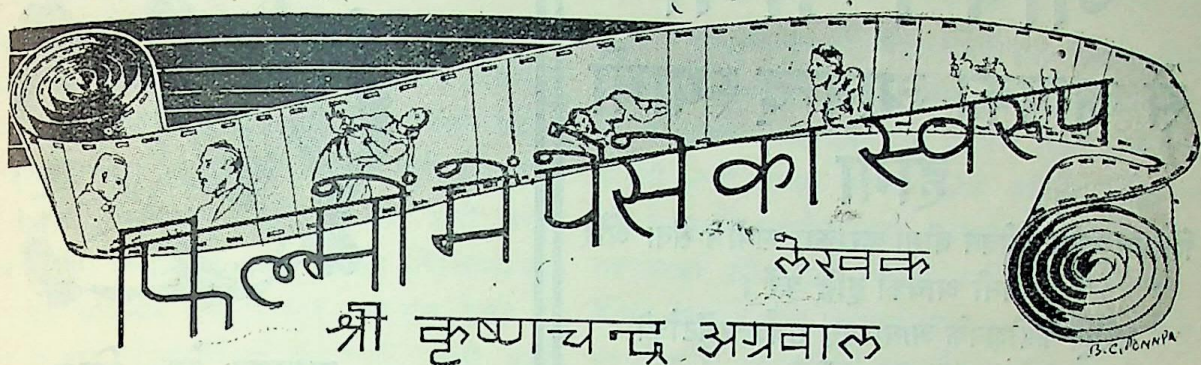 फिल्मों में पैसे का स्वरूप
लेखक
श्री कृष्णचन्द्र अग्रवाल
B.C. PONNPA